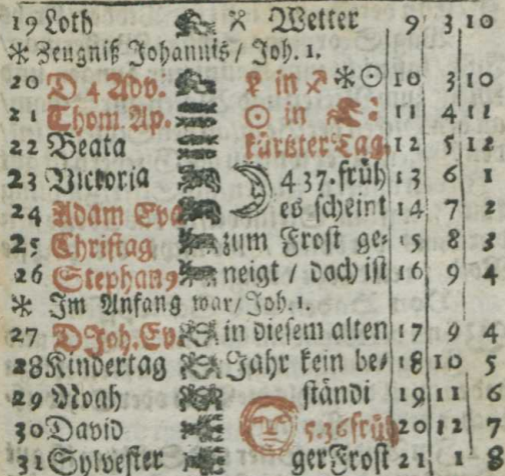 19 Loth Wetter 9 3 10
✻ Zeugniß Johannis / Joh. 1.
20 D 4 Adv. ♀ in ♐ ✻ ☉ 10 3 10
21 Thom Ap. ☉ in 11 4 11
22 Beata kürtzter Tag 12 5 12
23 Victoria ☾ 4 37. früh 13 6 1
24 Adam Eva es scheint 14 7 2
25 Christag zum Frost ge⸗ 15 8 3
26 Stephang neigt / doch ist 16 9 4
✻ Im Anfang war / Joh. 1.
27 D Joh. Ev. in diesem alten 17 9 4
28 Kindertag Jahr kein be⸗ 18 10 5
29 Noah ständi 19 11 6
30 David 5.36 früh 20 12 7
31 Sylvester ger Frost 21 1 8